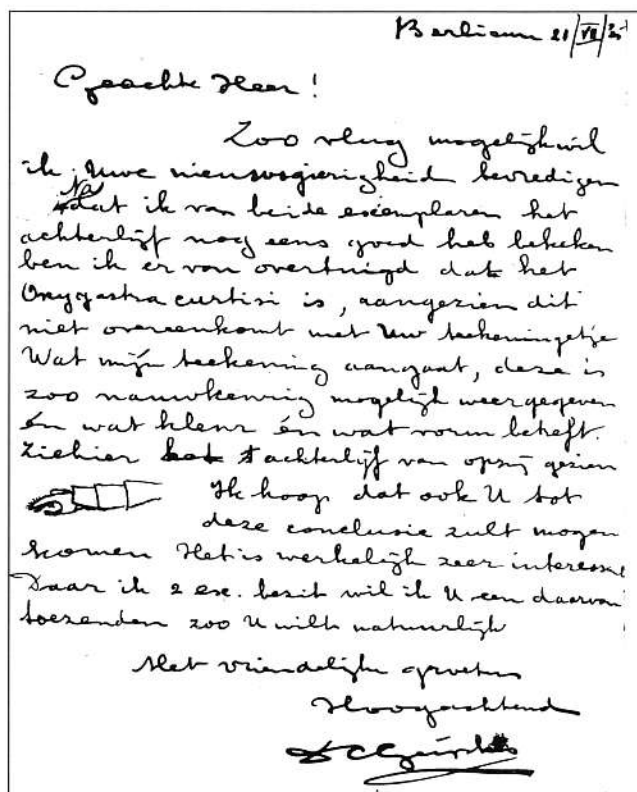 Berlicum 21/VII/25
Geachte Heer!
Zoo vlug mogelijk wil
ik Uwe nieuwsgierigheid bevredigen
Na dat ik van beide exemplaren het
achterlijf nog eens goed heb bekeken
ben ik er van overtuigd dat het
Oxygastra curtisi is, aangezien dit
niet overeenkomt met Uw teekeningetje
Wat mijn teekening aangaat, deze is
zoo nauwkeurig mogelijk weergegeven
én wat kleur én wat vorm betreft.
Ziehier 't achterlijf van opzij gezien
Ik hoop dat ook U tot
deze conclusie zult mogen
komen Het is werkelijk zeer interessant
Daar ik 2 ex. bezit wil ik U een daarvan
toezenden zoo U wilt natuurlijk
Met vriendelijke groeten
Hoogachtend